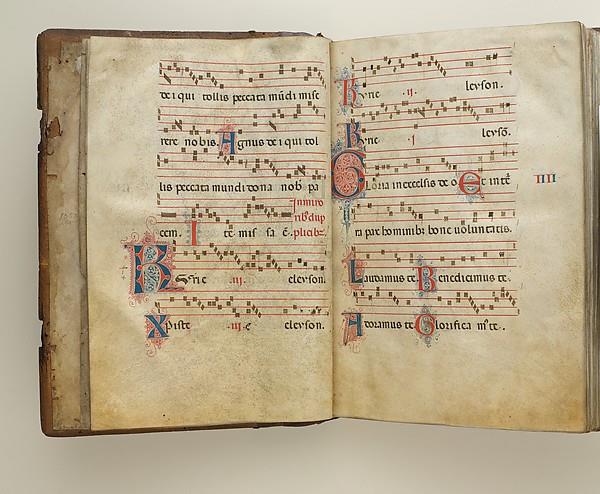 de i qui tollis peccata mūdi mise
rere nobis. Agnus de i qui tol
lis peccata mundi dona nob pa
In mino
ribꝰ dup
plicibꝫ
cem. Ite missa ē.
Kyrie .iij. eleyson.
Xpiste .iij. e eleyson.
Kyrie .ij. leyson.
Kyrie .i. leysō.
Gloria in excelsis de o Et in tē
IIII
ra pax hominibꝫ bone uoluntatis.
Laudamus te. Benedicimus te.
Adoramus te Glorifica mꝰ te.